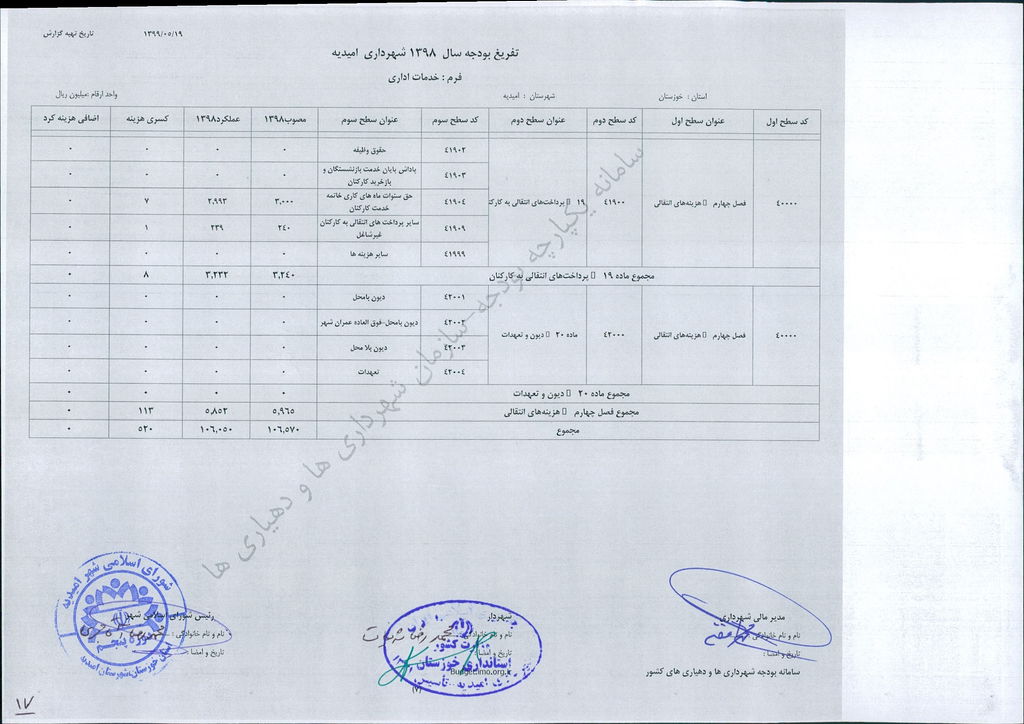 تاریخ تهیه گزارش ۱۳۹۹/۰۵/۱۹
تفریغ بودجه سال ۱۳۹۸ شهرداری امیدیه
فرم : خدمات اداری
استان : خوزستان شهرستان : امیدیه واحد ارقام :میلیون ریال
کد سطح اول عنوان سطح اول کد سطح دوم عنوان سطح دوم کد سطح سوم عنوان سطح سوم مصوب۱۳۹۸ عملکرد۱۳۹۸ کسری هزینه اضافی هزینه کرد
۴۰۰۰۰ فصل چهارم هزینه‌های انتقالی ۴۱۹۰۰ ۱۹ پرداخت‌های انتقالی به
۴۱۹۰۲ حقوق وظیفه ۰ ۰ ۰ ۰
۴۱۹۰۳ پاداش پایان خدمت بازنشستگان و بازخرید کارکنان ۰ ۰ ۰ ۰
۴۱۹۰۴ حق سنوات ماه های کاری خاتمه خدمت کارکنان ۳,۰۰۰ ۲,۹۹۳ ۷ ۰
۴۱۹۰۹ سایر پرداخت های انتقالی به کارکنان غیرشاغل ۲۴۰ ۲۳۹ ۱ ۰
۴۱۹۹۹ سایر هزینه ها ۰ ۰ ۰ ۰
مجموع ماده ۱۹ پرداخت‌های انتقالی به کارکنان ۳,۲۴۰ ۳,۲۳۲ ۸ ۰
۴۰۰۰۰ فصل چهارم هزینه‌های انتقالی ۴۲۰۰۰ ماده ۲۰ دیون و تعهدات
۴۲۰۰۱ دیون بامحل ۰ ۰ ۰ ۰
۴۲۰۰۲ دیون بامحل-فوق العاده عمران شهر ۰ ۰ ۰ ۰
۴۲۰۰۳ دیون بلا محل ۰ ۰ ۰ ۰
۴۲۰۰۴ تعهدات ۰ ۰ ۰ ۰
مجموع ماده ۲۰ دیون و تعهدات ۰ ۰ ۰ ۰
مجموع فصل چهارم هزینه‌های انتقالی ۵,۹۶۵ ۵,۸۵۲ ۱۱۳ ۰
مجموع ۱۰۶,۵۷۰ ۱۰۶,۰۵۰ ۵۲۰ ۰
سامانه یکپارچه بودجه-سازمان شهرداری ها و دهیاری ها
مدیر مالی شهرداری شهردار رئیس شورای اسلامی شهر
نام و نام خانوادگی : نام و نام خانوادگی : محمدرضا نام و نام خانوادگی :
تاریخ و امضا : تاریخ و امضا : تاریخ و امضا :
سامانه بودجه شهرداری ها و دهیاری های کشور Budget.imo.org.ir
شورای اسلامی شهر امیدیه
دوره پنجم
استان خوزستان-شهرستان امیدیه
وزارت کشور
استانداری خوزستان
امیدیه تأسیس
(۷)
۱۷